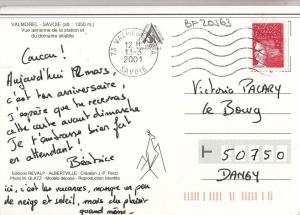 VALMOREL - SAVOIE (alt. : 1350 m)
Vue aérienne de la station et
du domaine skiable
Coucou !
Aujourd'hui 12 mars,
c'est ton anniversaire,
j'espère que tu recevras
cette carte avant dimanche
Je t'embrasse bien fort
en attendant !
Béatrice
Editions REVALP - ALBERTVILLE - Création J.-P. Fecci
Photo M. GLATZ - Modèle déposé - Reproduction interdite
ici, c'est les vacances, manque un peu
de neige et soleil, mais du plaisir
quand même
73 VALMOREL
12 H
13-3
2001
SAVOIE
BF 20363
Victoria PACARY
Le Bourg
50750
DANGY